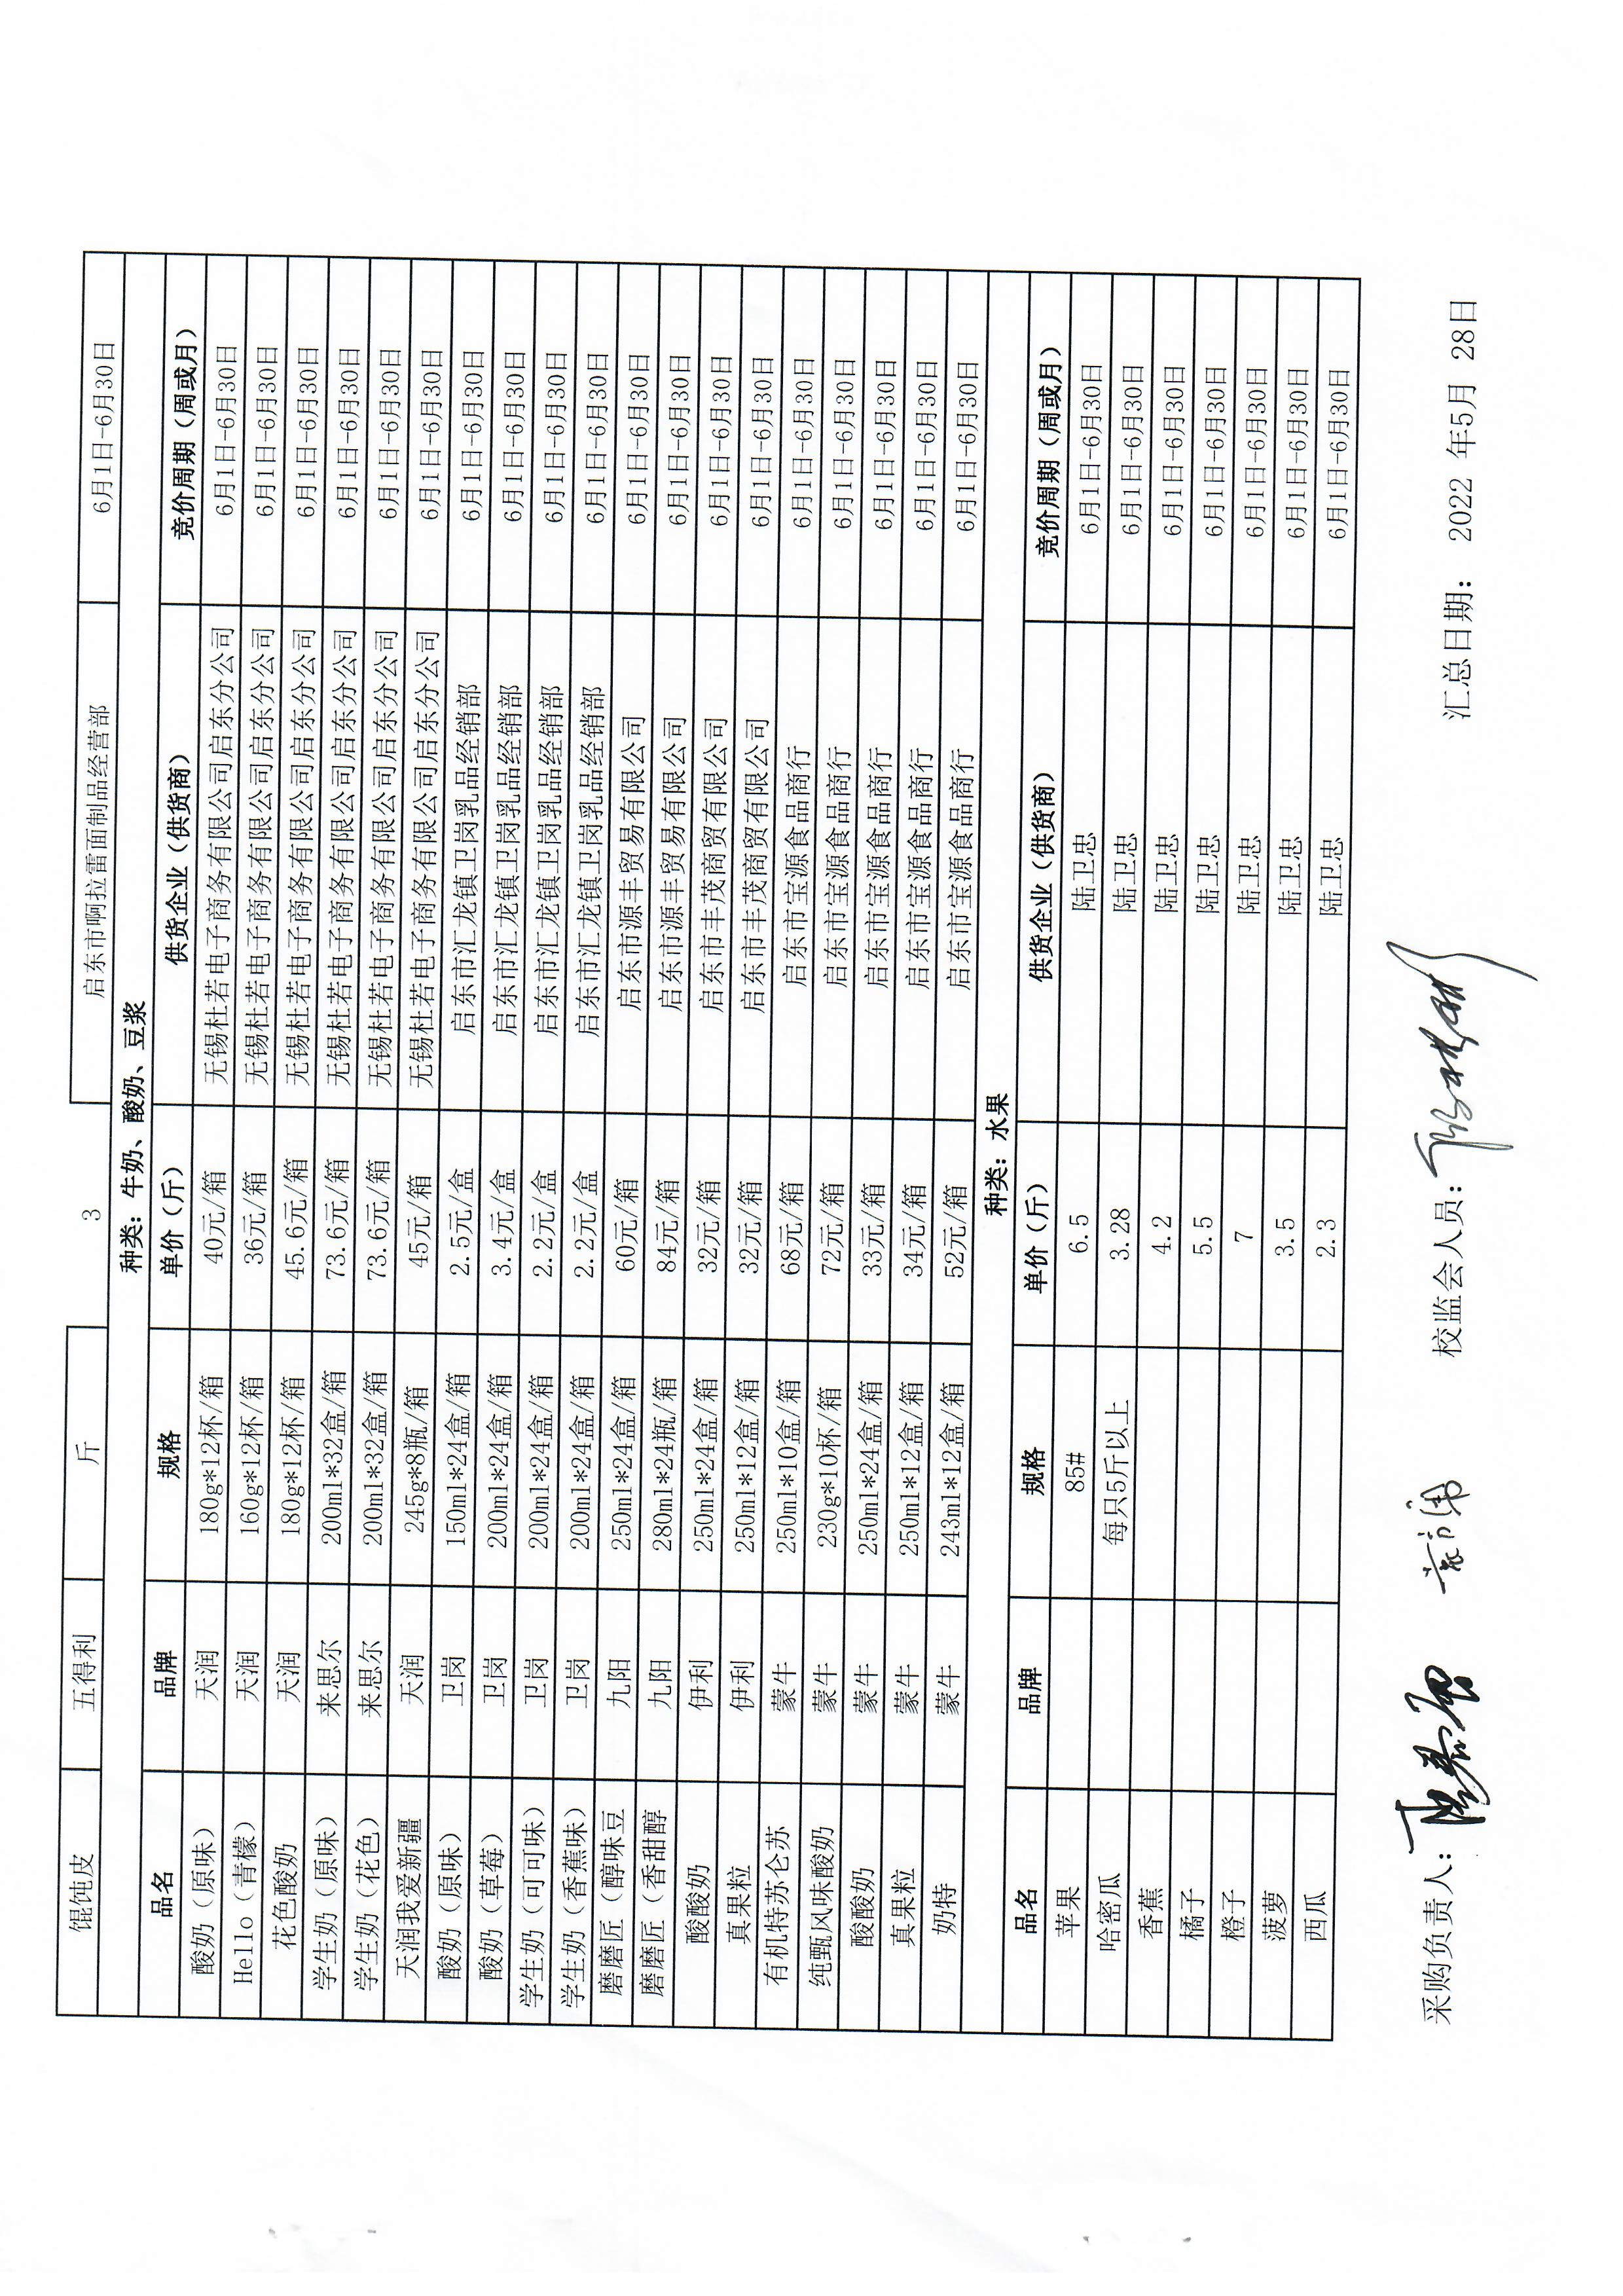 馄饨皮 五得利 斤 3 启东市啊拉雷面制品经营部 6月1日-6月30日
种类：牛奶、酸奶、豆浆
品名 品牌 规格 单价（斤） 供货企业（供货商） 竞价周期（周或月）
酸奶（原味） 天润 180g*12杯/箱 40元/箱 无锡杜若电子商务有限公司启东分公司 6月1日-6月30日
Hello（青檬） 天润 160g*12杯/箱 36元/箱 无锡杜若电子商务有限公司启东分公司 6月1日-6月30日
花色酸奶 天润 180g*12杯/箱 45.6元/箱 无锡杜若电子商务有限公司启东分公司 6月1日-6月30日
学生奶（原味） 来思尔 200ml*32盒/箱 73.6元/箱 无锡杜若电子商务有限公司启东分公司 6月1日-6月30日
学生奶（花色） 来思尔 200ml*32盒/箱 73.6元/箱 无锡杜若电子商务有限公司启东分公司 6月1日-6月30日
天润我爱新疆 天润 245g*8瓶/箱 45元/箱 无锡杜若电子商务有限公司启东分公司 6月1日-6月30日
酸奶（原味） 卫岗 150ml*24盒/箱 2.5元/盒 启东市汇龙镇卫岗乳品经销部 6月1日-6月30日
酸奶（草莓） 卫岗 200ml*24盒/箱 3.4元/盒 启东市汇龙镇卫岗乳品经销部 6月1日-6月30日
学生奶（可可味） 卫岗 200ml*24盒/箱 2.2元/盒 启东市汇龙镇卫岗乳品经销部 6月1日-6月30日
学生奶（香蕉味） 卫岗 200ml*24盒/箱 2.2元/盒 启东市汇龙镇卫岗乳品经销部 6月1日-6月30日
磨磨匠（醇味豆 九阳 250ml*24盒/箱 60元/箱 启东市源丰贸易有限公司 6月1日-6月30日
磨磨匠（香甜醇 九阳 280ml*24瓶/箱 84元/箱 启东市源丰贸易有限公司 6月1日-6月30日
酸酸奶 伊利 250ml*24盒/箱 32元/箱 启东市丰茂商贸有限公司 6月1日-6月30日
真果粒 伊利 250ml*12盒/箱 32元/箱 启东市丰茂商贸有限公司 6月1日-6月30日
有机特苏仑苏 蒙牛 250ml*10盒/箱 68元/箱 启东市宝源食品商行 6月1日-6月30日
纯甄风味酸奶 蒙牛 230g*10杯/箱 72元/箱 启东市宝源食品商行 6月1日-6月30日
酸酸奶 蒙牛 250ml*24盒/箱 33元/箱 启东市宝源食品商行 6月1日-6月30日
真果粒 蒙牛 250ml*12盒/箱 34元/箱 启东市宝源食品商行 6月1日-6月30日
奶特 蒙牛 243ml*12盒/箱 52元/箱 启东市宝源食品商行 6月1日-6月30日
种类：水果
品名 品牌 规格 单价（斤） 供货企业（供货商） 竞价周期（周或月）
苹果 85# 6.5 陆卫忠 6月1日-6月30日
哈密瓜 每只5斤以上 3.28 陆卫忠 6月1日-6月30日
香蕉 4.2 陆卫忠 6月1日-6月30日
橘子 5.5 陆卫忠 6月1日-6月30日
橙子 7 陆卫忠 6月1日-6月30日
菠萝 3.5 陆卫忠 6月1日-6月30日
西瓜 2.3 陆卫忠 6月1日-6月30日
采购负责人： 校监会人员： 汇总日期： 2022 年5月 28日